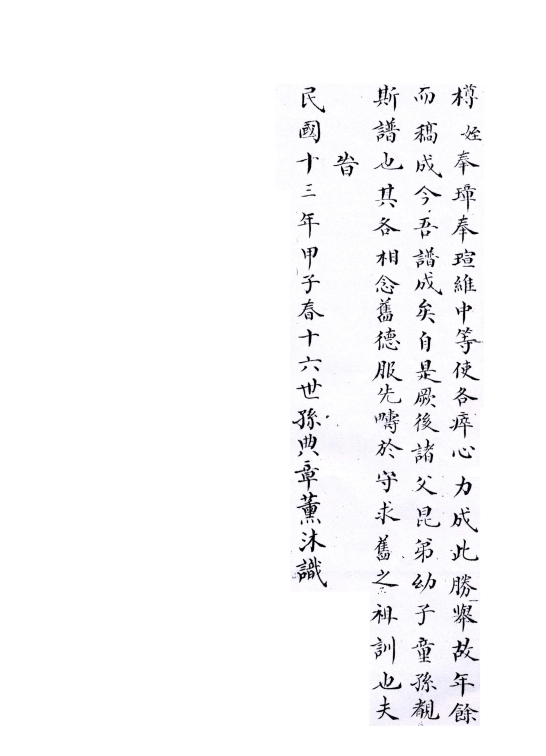 樽姪奉璋奉瑄維中等使各瘁心力成此勝舉故年餘
而稿成今吾譜成矣自是厥後諸父昆弟幼子童孫覩
斯譜也其各相念舊德服先疇於守求舊之祖訓也夫
旹
民國十三年甲子春十六世孫典章薰沐識